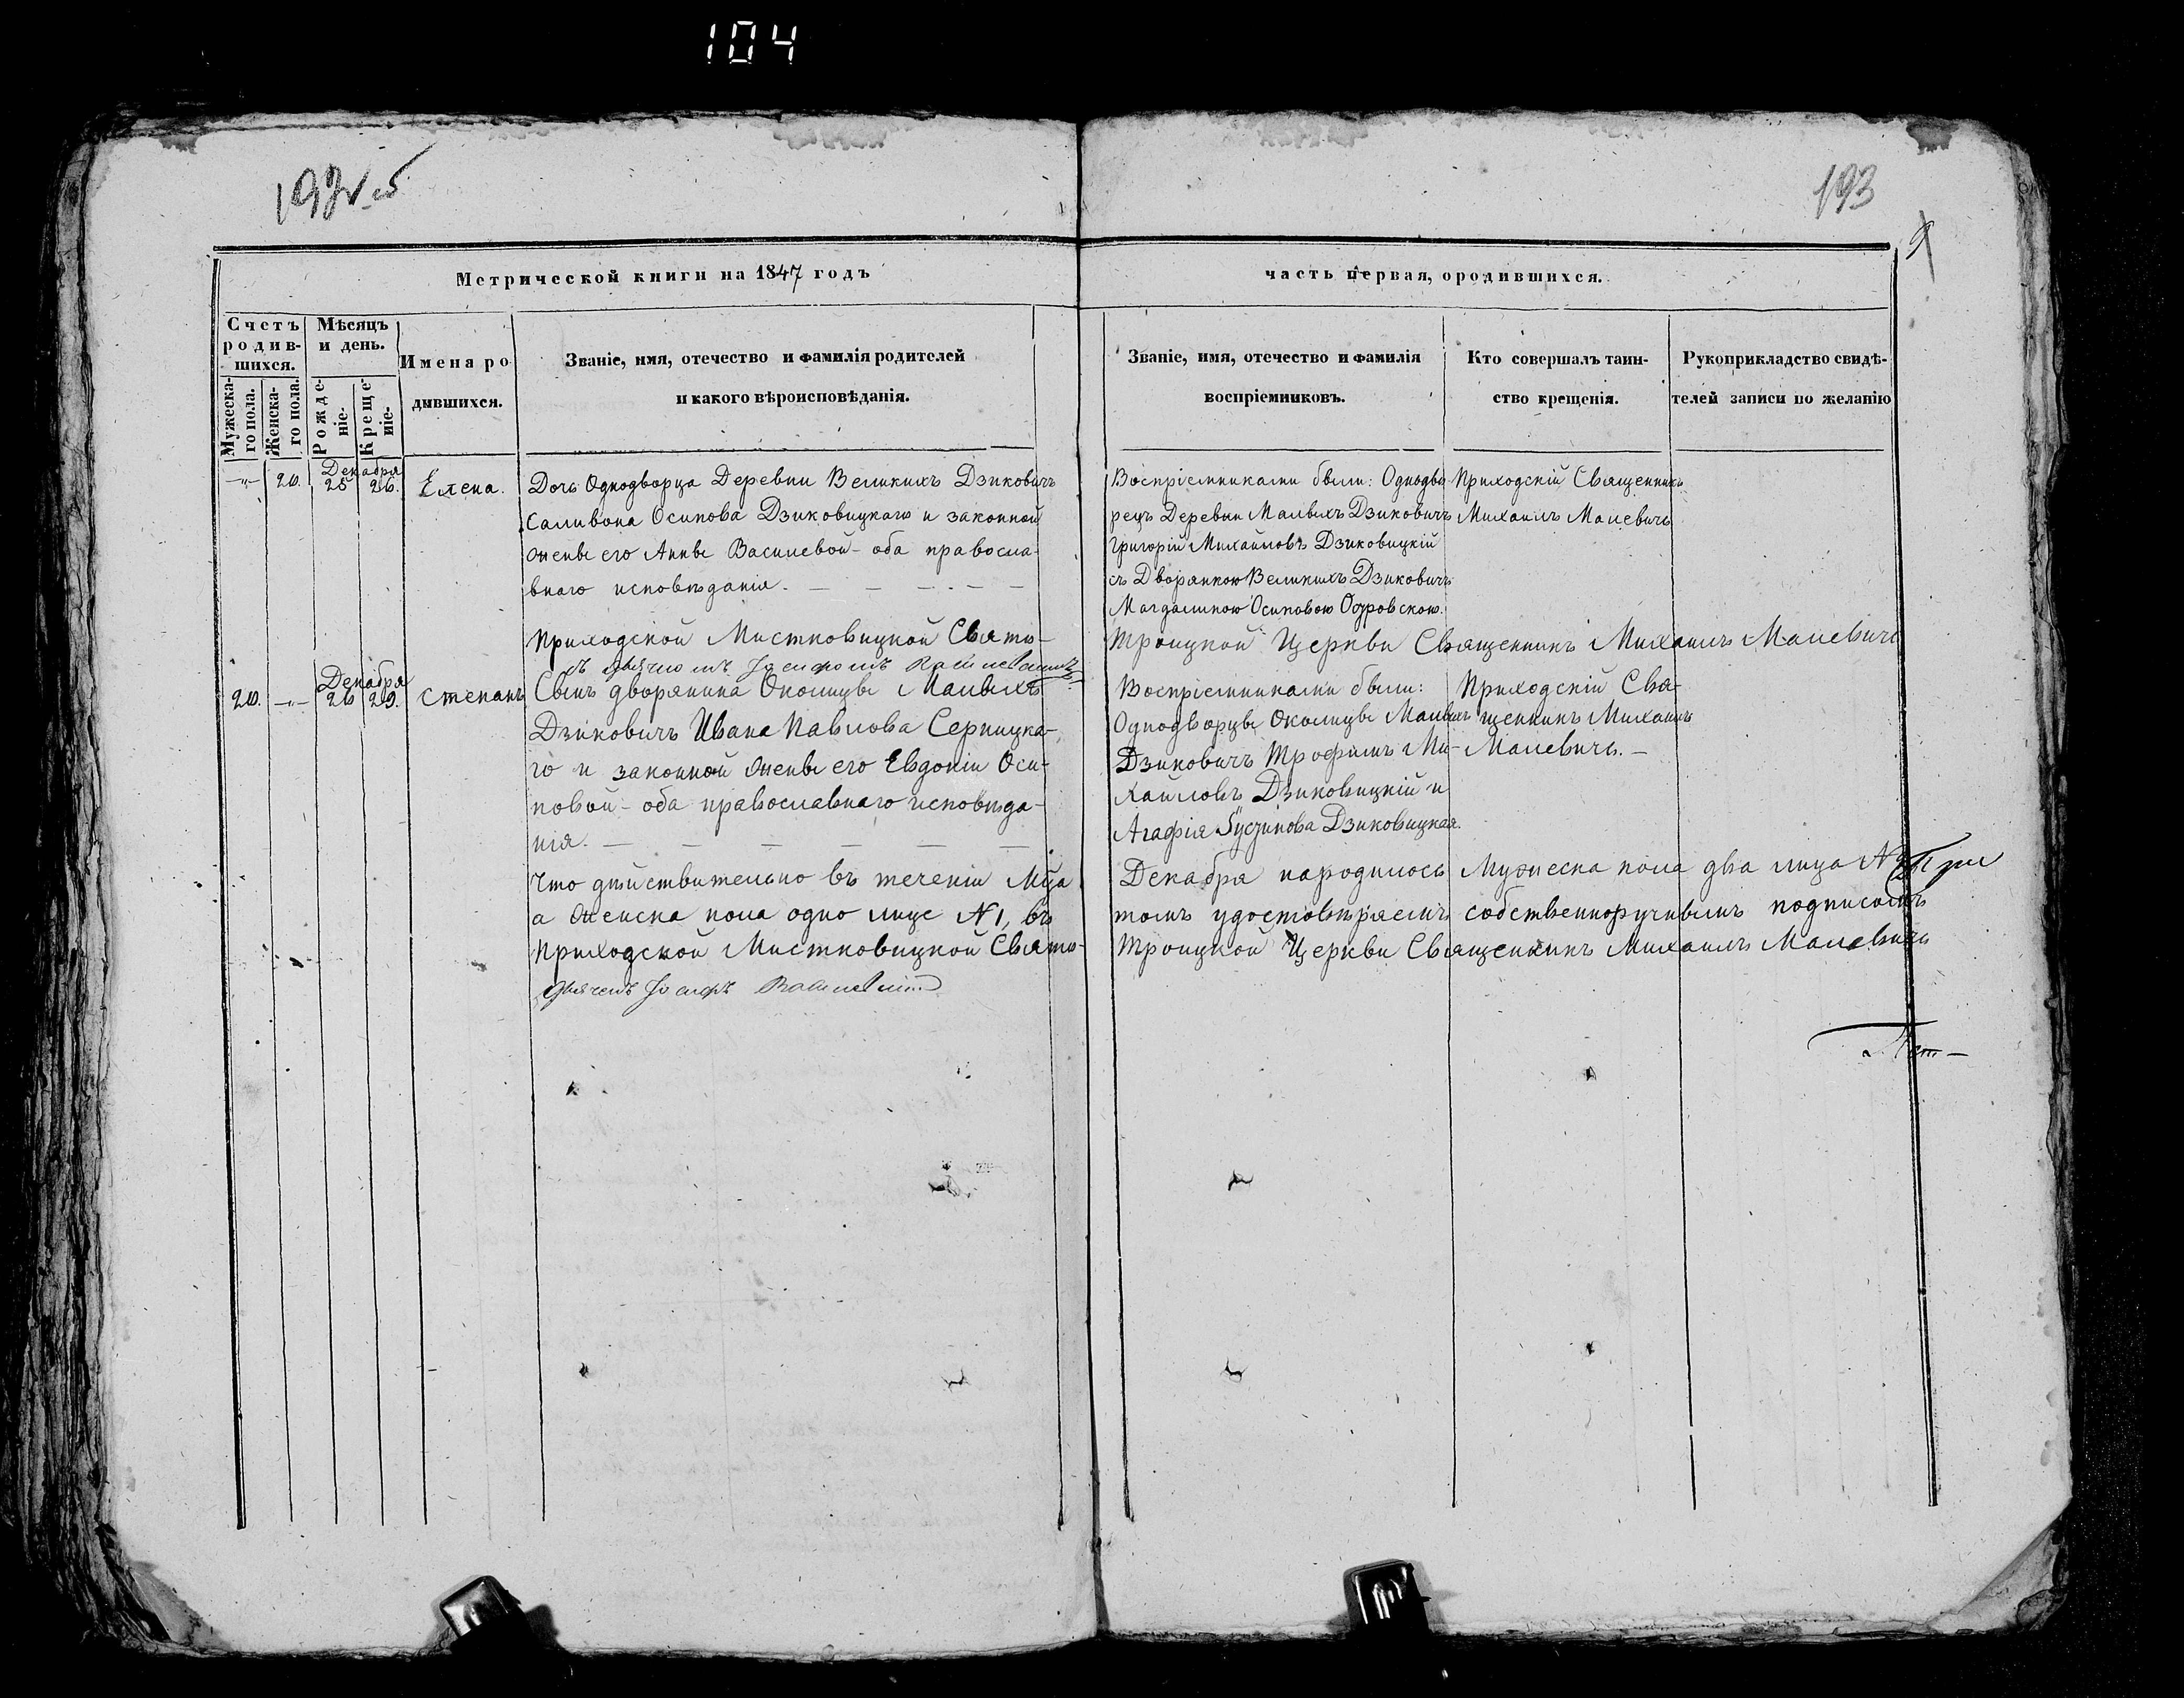 104
192 об
193
9
Метрической книги на 1847 годъ
часть первая, ородившихся.
Счетъ родив-шихся.
Мѣсяцъ и день.
Имена ро-дившихся.
Званіе, имя, отечество и фамилія родителей
и какого вѣроисповѣданія.
Званіе, имя, отечество и фамилія
воспріемниковъ.
Кто совершалъ таин-
ство крещенія.
Рукоприкладство свидѣ-
телей записи по желанію
Мужеска-го пола.
Женска-го пола.
Рожде-ніе.
Креще-ніе.
Декабря
-"- 20. 25 26. Елена.
Дочь Однодворца Деревни Великихъ Дзиковичъ
Саливона Осипова Дзиковицкаго и законной
жены его Анны Василевой - оба правосла-
внаго исповѣданія. — — — —
Воспріемниками были: Однодво-
рецъ Деревни Малыхъ Дзиковичъ
Григорій Михайловъ Дзиковицкій
съ Дворянкою Великихъ Дзиковичъ
Магдалиною Осиповою Островскою.
Приходскій Священникъ
Михаилъ Малевичъ
Приходской Мистковицкой Свято-
Троицкой Церкви Священникъ Михаилъ Малевичъ
съ дьячкомъ Іосифомъ
Декабря
20. -"- 26 29. Степанъ
Сынъ дворянина Околицы Малыхъ
Дзиковичъ Ивана Павлова Серницка-
го и законной жены его Евдокіи Оси-
повой - оба православнаго исповѣда-
нія. — — — — — —
Воспріемниками были:
Однодворцы Околицы Малыхъ
Дзиковичъ Трофимъ Ми-
хайловъ Дзиковицкій и
Агафія Дзиковицкая.
Приходскій Свя-
щенникъ Михаилъ
Малевичъ. —
Что дѣйствительно въ теченіи Мца
Декабря народилось Мужеска пола два лица
а женска пола одно лице N 1, въ
томъ удостовѣряемъ собственноручнымъ подписомъ
Приходской Мистковицкой Свято-
Троицкой Церкви Священникъ Михаилъ Малевичъ
дьячекъ Іосифъ